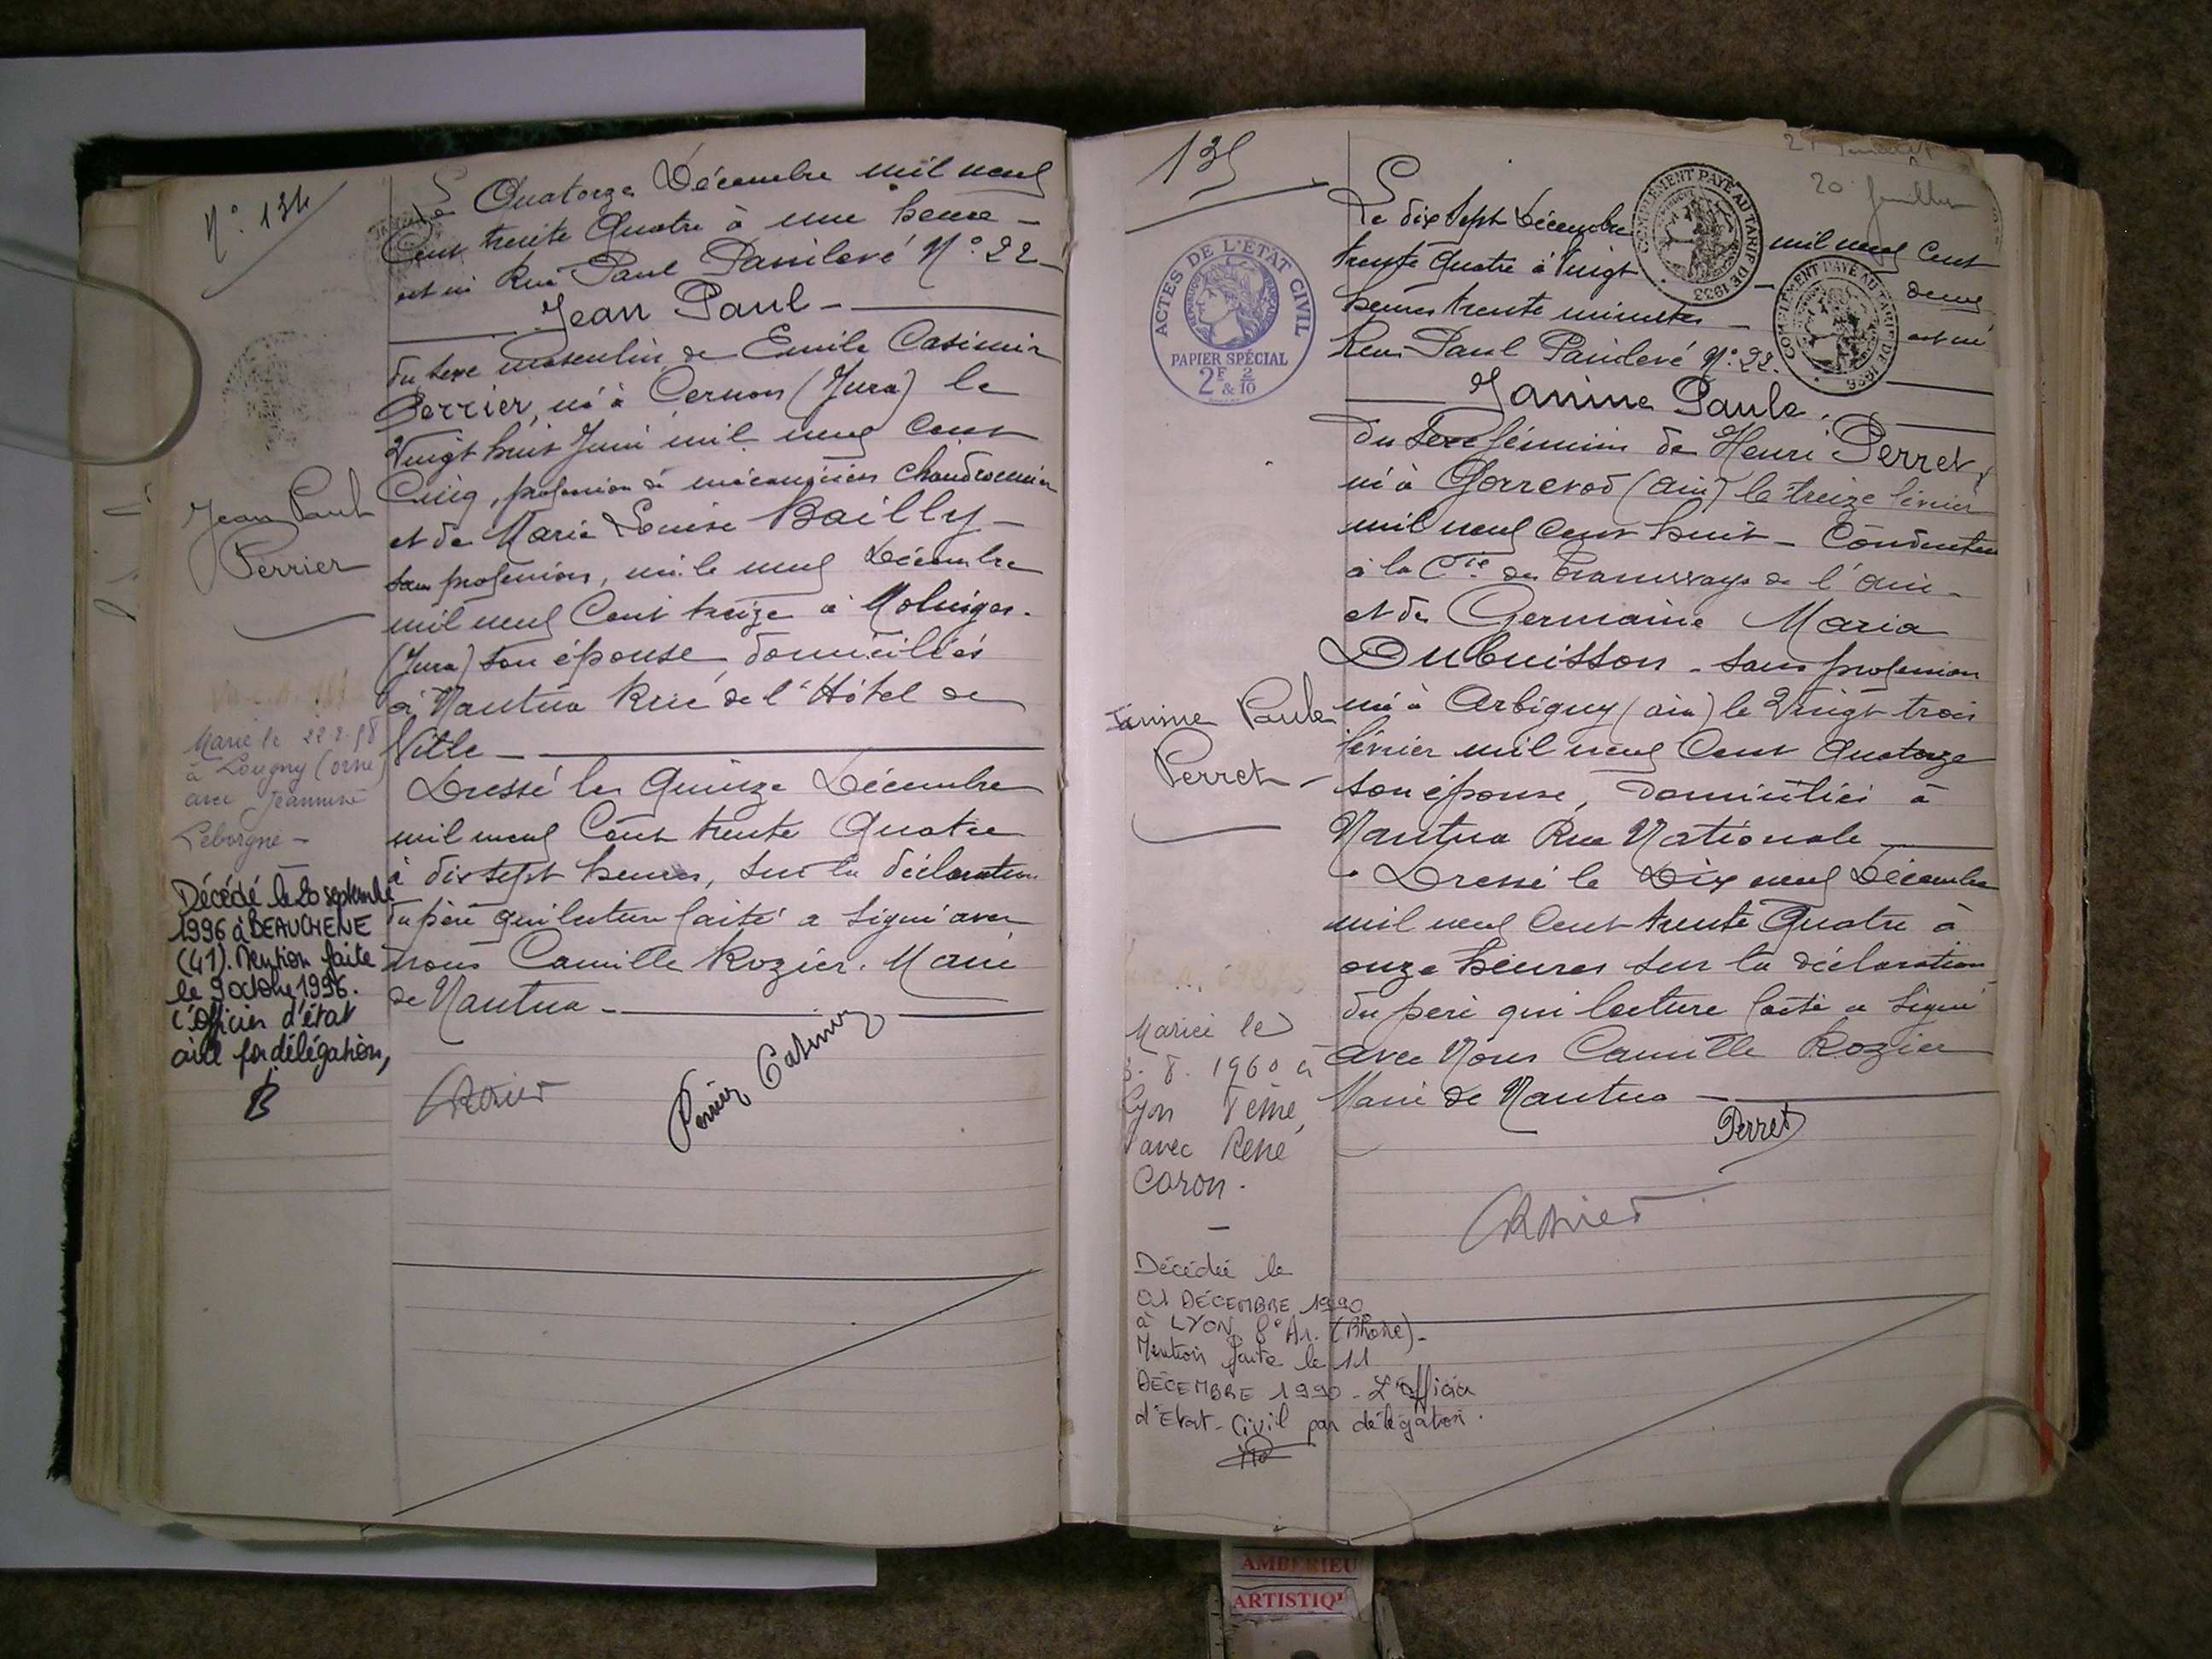 N° 134
Le Quatorze Décembre mil neuf
Cent trente Quatre à une heure -
est né Rue Paul Painlevé N° 22 -
Jean Paul -
du sexe masculin, de Emile Casimir
Perrier, né à Cernon (Jura) le
Vingt huit Juin mil neuf cent
Cinq, profession de mécanicien chaudronnier
et de Marie Louise Bailly -
sans profession, née le neuf Décembre
mil neuf Cent treize à Molinges -
(Jura) son épouse domiciliés
à Nantua Rue de l'Hôtel de
Ville -
Dressé le Quinze Décembre
mil neuf Cent trente Quatre
à dix sept heures, sur la déclaration
du père qui lecture faite a signé avec
nous Camille Rozier. Maire
de Nantua -
Perrier Casimir
CRozier
Jean Paul
Perrier
Marié le 22.2.58
à Longny (Orne)
avec Jeannine
Leborgne -
Décédé le 20 septembre
1996 à BEAUCHENE
(41). Mention faite
le 9 octobre 1996.
L'Officier d'état
civil par délégation,
135
20 feuillets
ACTES DE L'ETAT CIVIL
PAPIER SPÉCIAL
2F & 2/10
COMPLÉMENT PAYÉ AU TARIF DE 1933
COMPLÉMENT PAYÉ AU TARIF DE 1936
Le dix sept Décembre mil neuf Cent
trente Quatre à Vingt - deux
heures trente minutes - est né
Rue Paul Painlevé N° 22.
Janine Paule.
du sexe féminin de Henri Perret,
né à Gorrevod (Ain) le treize février
mil neuf cent huit - Conducteur
à la Cie des Tramways de l'Ain -
et de Germaine Maria
Dubuisson - sans profession
née à Arbigny (Ain) le Vingt trois
février mil neuf Cent Quatorze
son épouse, domiciliés à
Nantua Rue Nationale
Dressé le Dix neuf Décembre
mil neuf Cent trente Quatre à
onze heures sur la déclaration
du père qui lecture faite a signé
avec Nous Camille Rozier
Maire de Nantua -
Perret
CRozier
Janine Paule
Perret -
Mariée le
3. 8. 1960 à
Lyon Vème,
avec René
Caron.
Décédée le
01 DÉCEMBRE 1990
à LYON 8e Ar. (Rhône) -
Mention faite le 11
DÉCEMBRE 1990 - L'Officier
d'Etat-Civil par délégation.
AMBERIEU
ARTISTIQU